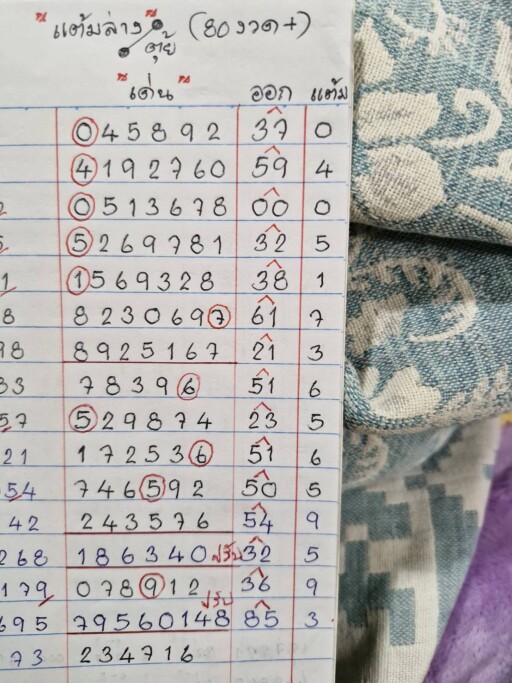 "แต้มล่าง" (80 งวด +)
ตุ้ย
"เด่น" ออก แต้ม
0 4 5 8 9 2 37 0
4 1 9 2 7 6 0 59 4
2 0 5 1 3 6 7 8 00 0
5 2 6 9 7 8 1 32 5
1 1 5 6 9 3 2 8 38 1
8 8 2 3 0 6 9 7 61 7
98 8 9 2 5 1 6 7 21 3
33 7 8 3 9 6 51 6
57 5 2 9 8 7 4 23 5
21 1 7 2 5 3 6 51 6
54 7 4 6 5 9 2 50 5
42 2 4 3 5 7 6 54 9
268 1 8 6 3 4 0 ปรับ 32 5
179 0 7 8 9 1 2 36 9
695 7 9 5 6 0 1 4 8 ปรับ 85 3
73 2 3 4 7 1 6